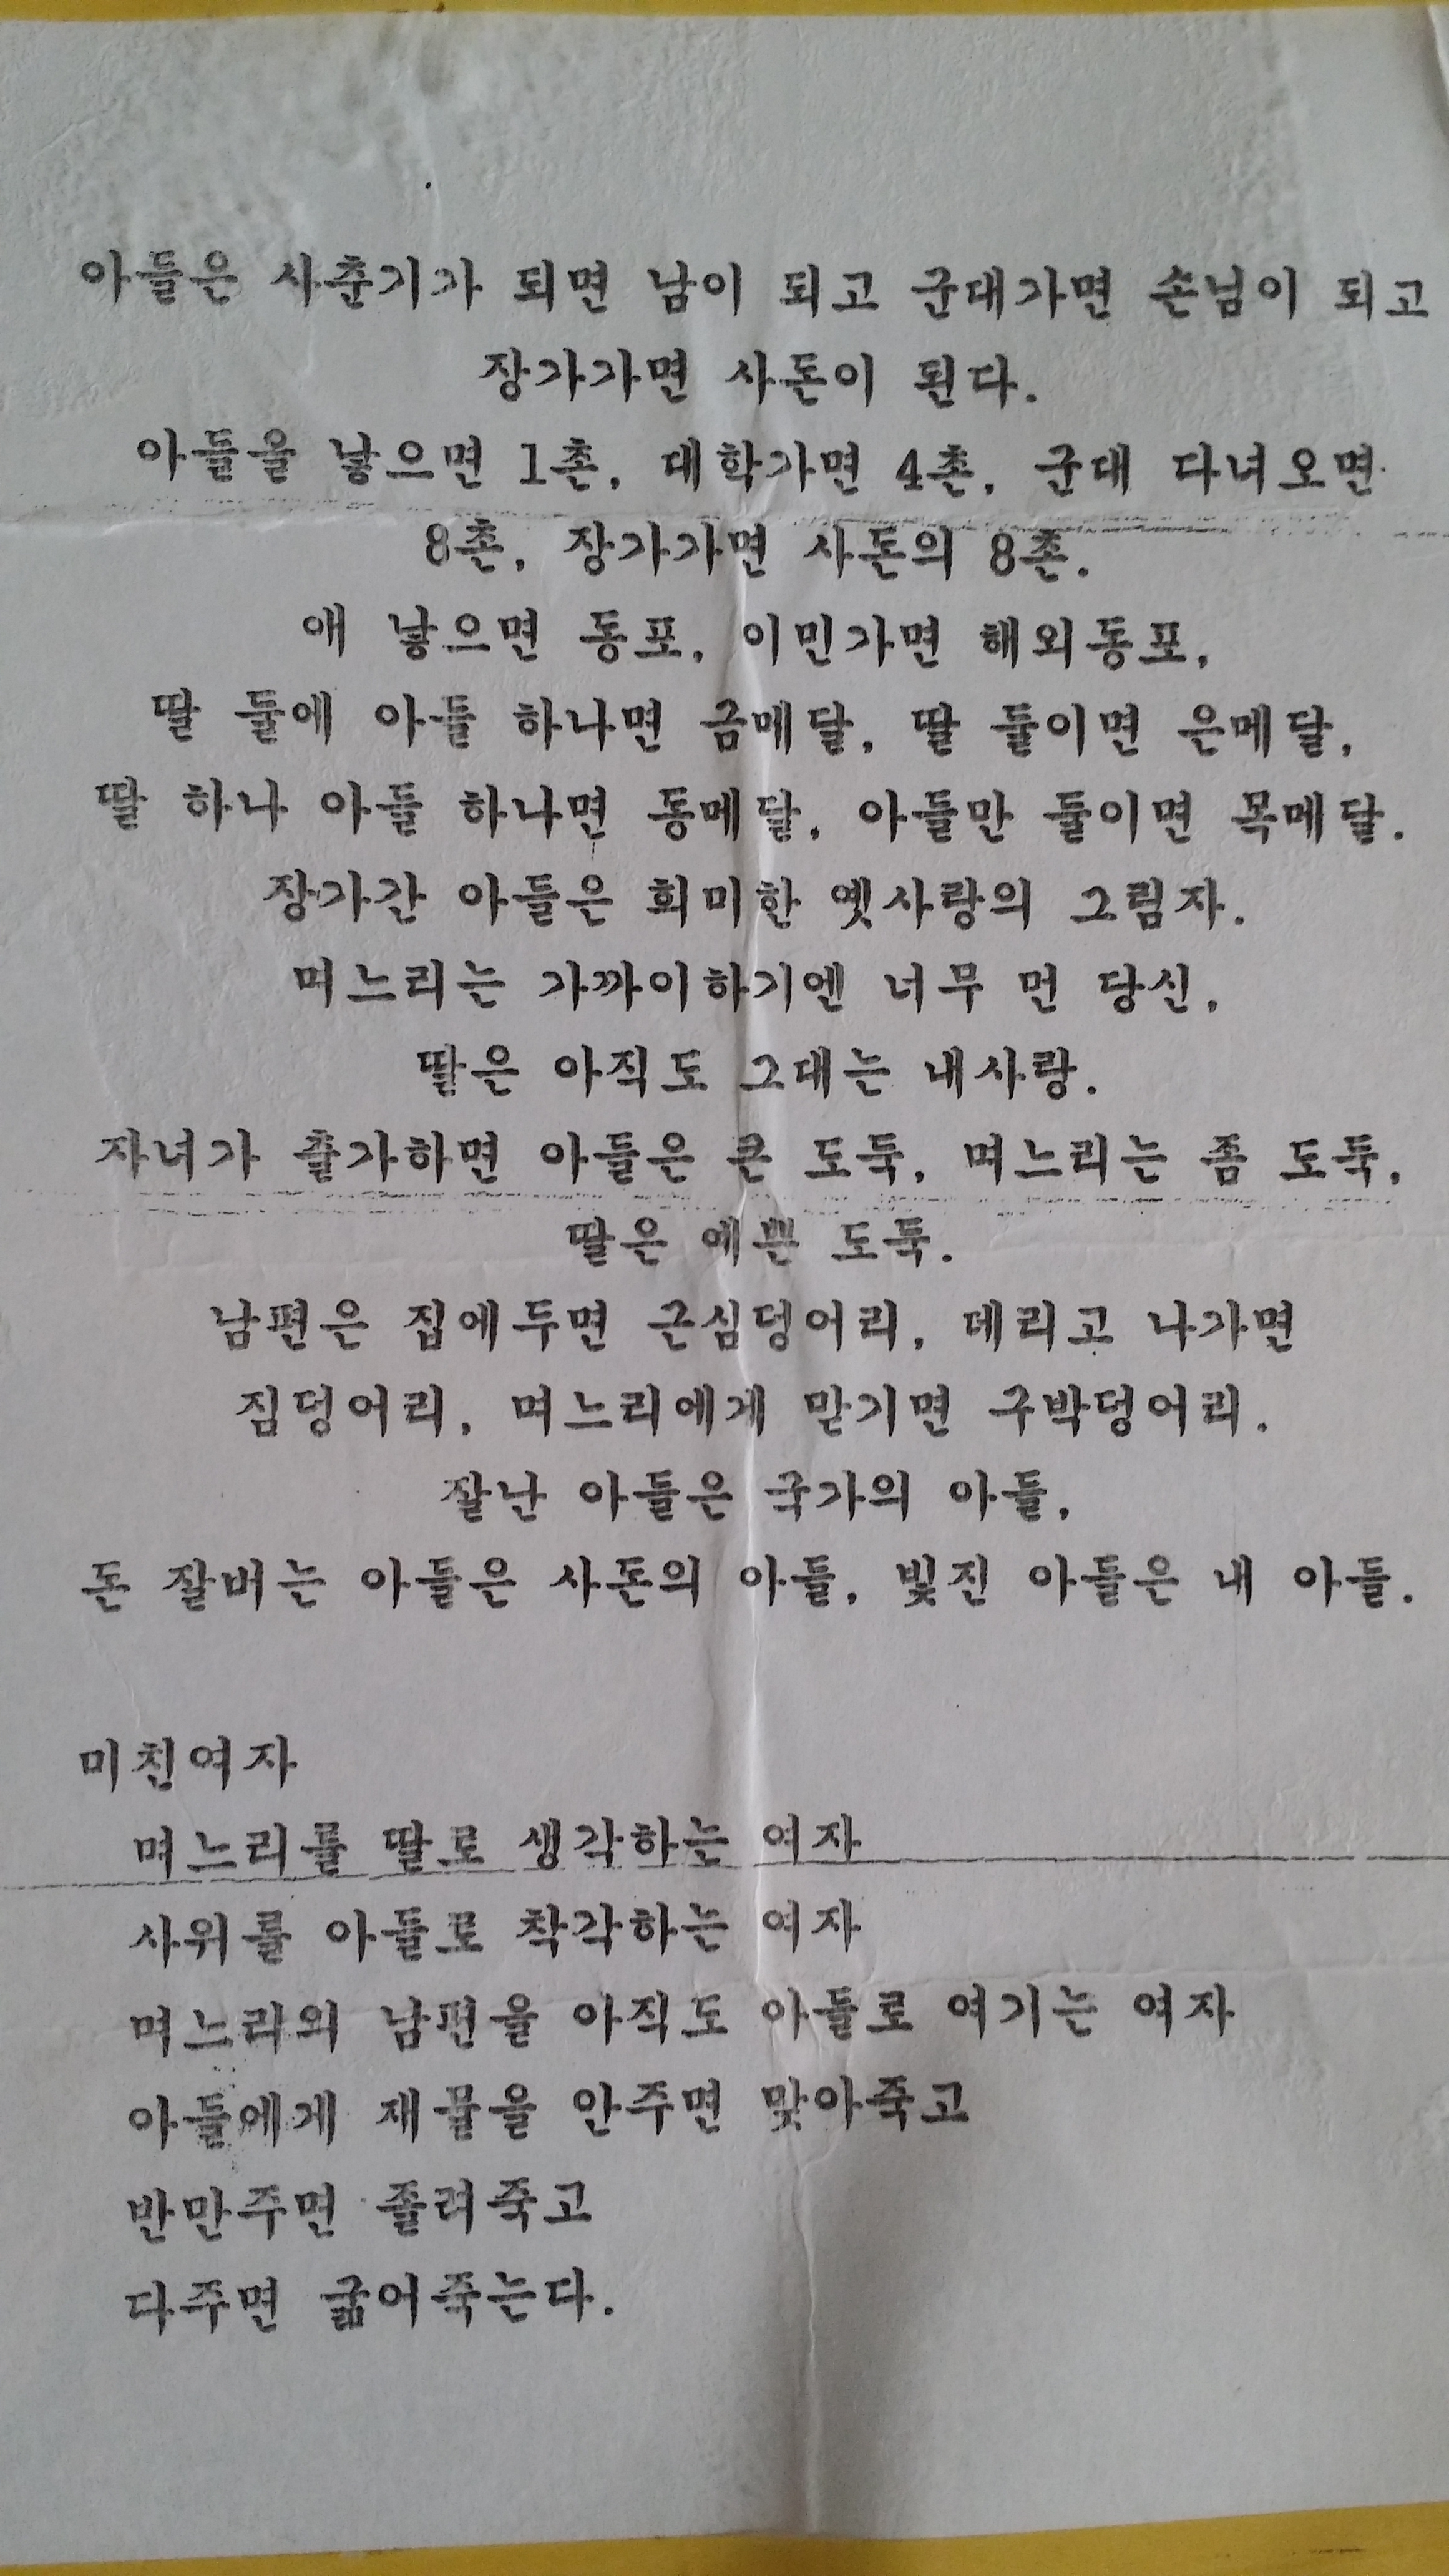 아들은 사춘기가 되면 남이 되고 군대가면 손님이 되고
장가가면 사돈이 된다.
아들을 낳으면 1촌, 대학가면 4촌, 군대 다녀오면
8촌, 장가가면 사돈의 8촌.
애 낳으면 동포, 이민가면 해외동포,
딸 둘에 아들 하나면 금메달, 딸 둘이면 은메달,
딸 하나 아들 하나면 동메달, 아들만 둘이면 목메달.
장가간 아들은 희미한 옛사랑의 그림자.
며느리는 가까이하기엔 너무 먼 당신,
딸은 아직도 그대는 내사랑.
자녀가 출가하면 아들은 큰 도둑, 며느리는 좀 도둑,
딸은 예쁜 도둑.
남편은 집에두면 근심덩어리, 데리고 나가면
짐덩어리, 며느리에게 맡기면 구박덩어리.
잘난 아들은 국가의 아들,
돈 잘버는 아들은 사돈의 아들, 빚진 아들은 내 아들.
미친여자
며느리를 딸로 생각하는 여자
사위를 아들로 착각하는 여자
며느리의 남편을 아직도 아들로 여기는 여자
아들에게 재물을 안주면 맞아죽고
반만주면 졸려죽고
다주면 굶어죽는다.